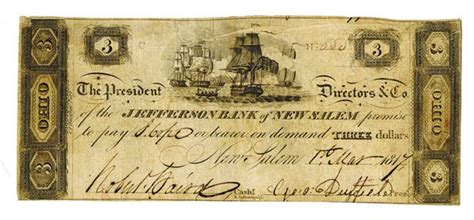 3 3
3 3
The President Directors & Co
of the JEFFERSON BANK of NEW SALEM promise
to pay S. Cope or bearer on demand THREE dollars
New Salem 1st Mar 1817
Cash!
OHIO OHIO
3 3